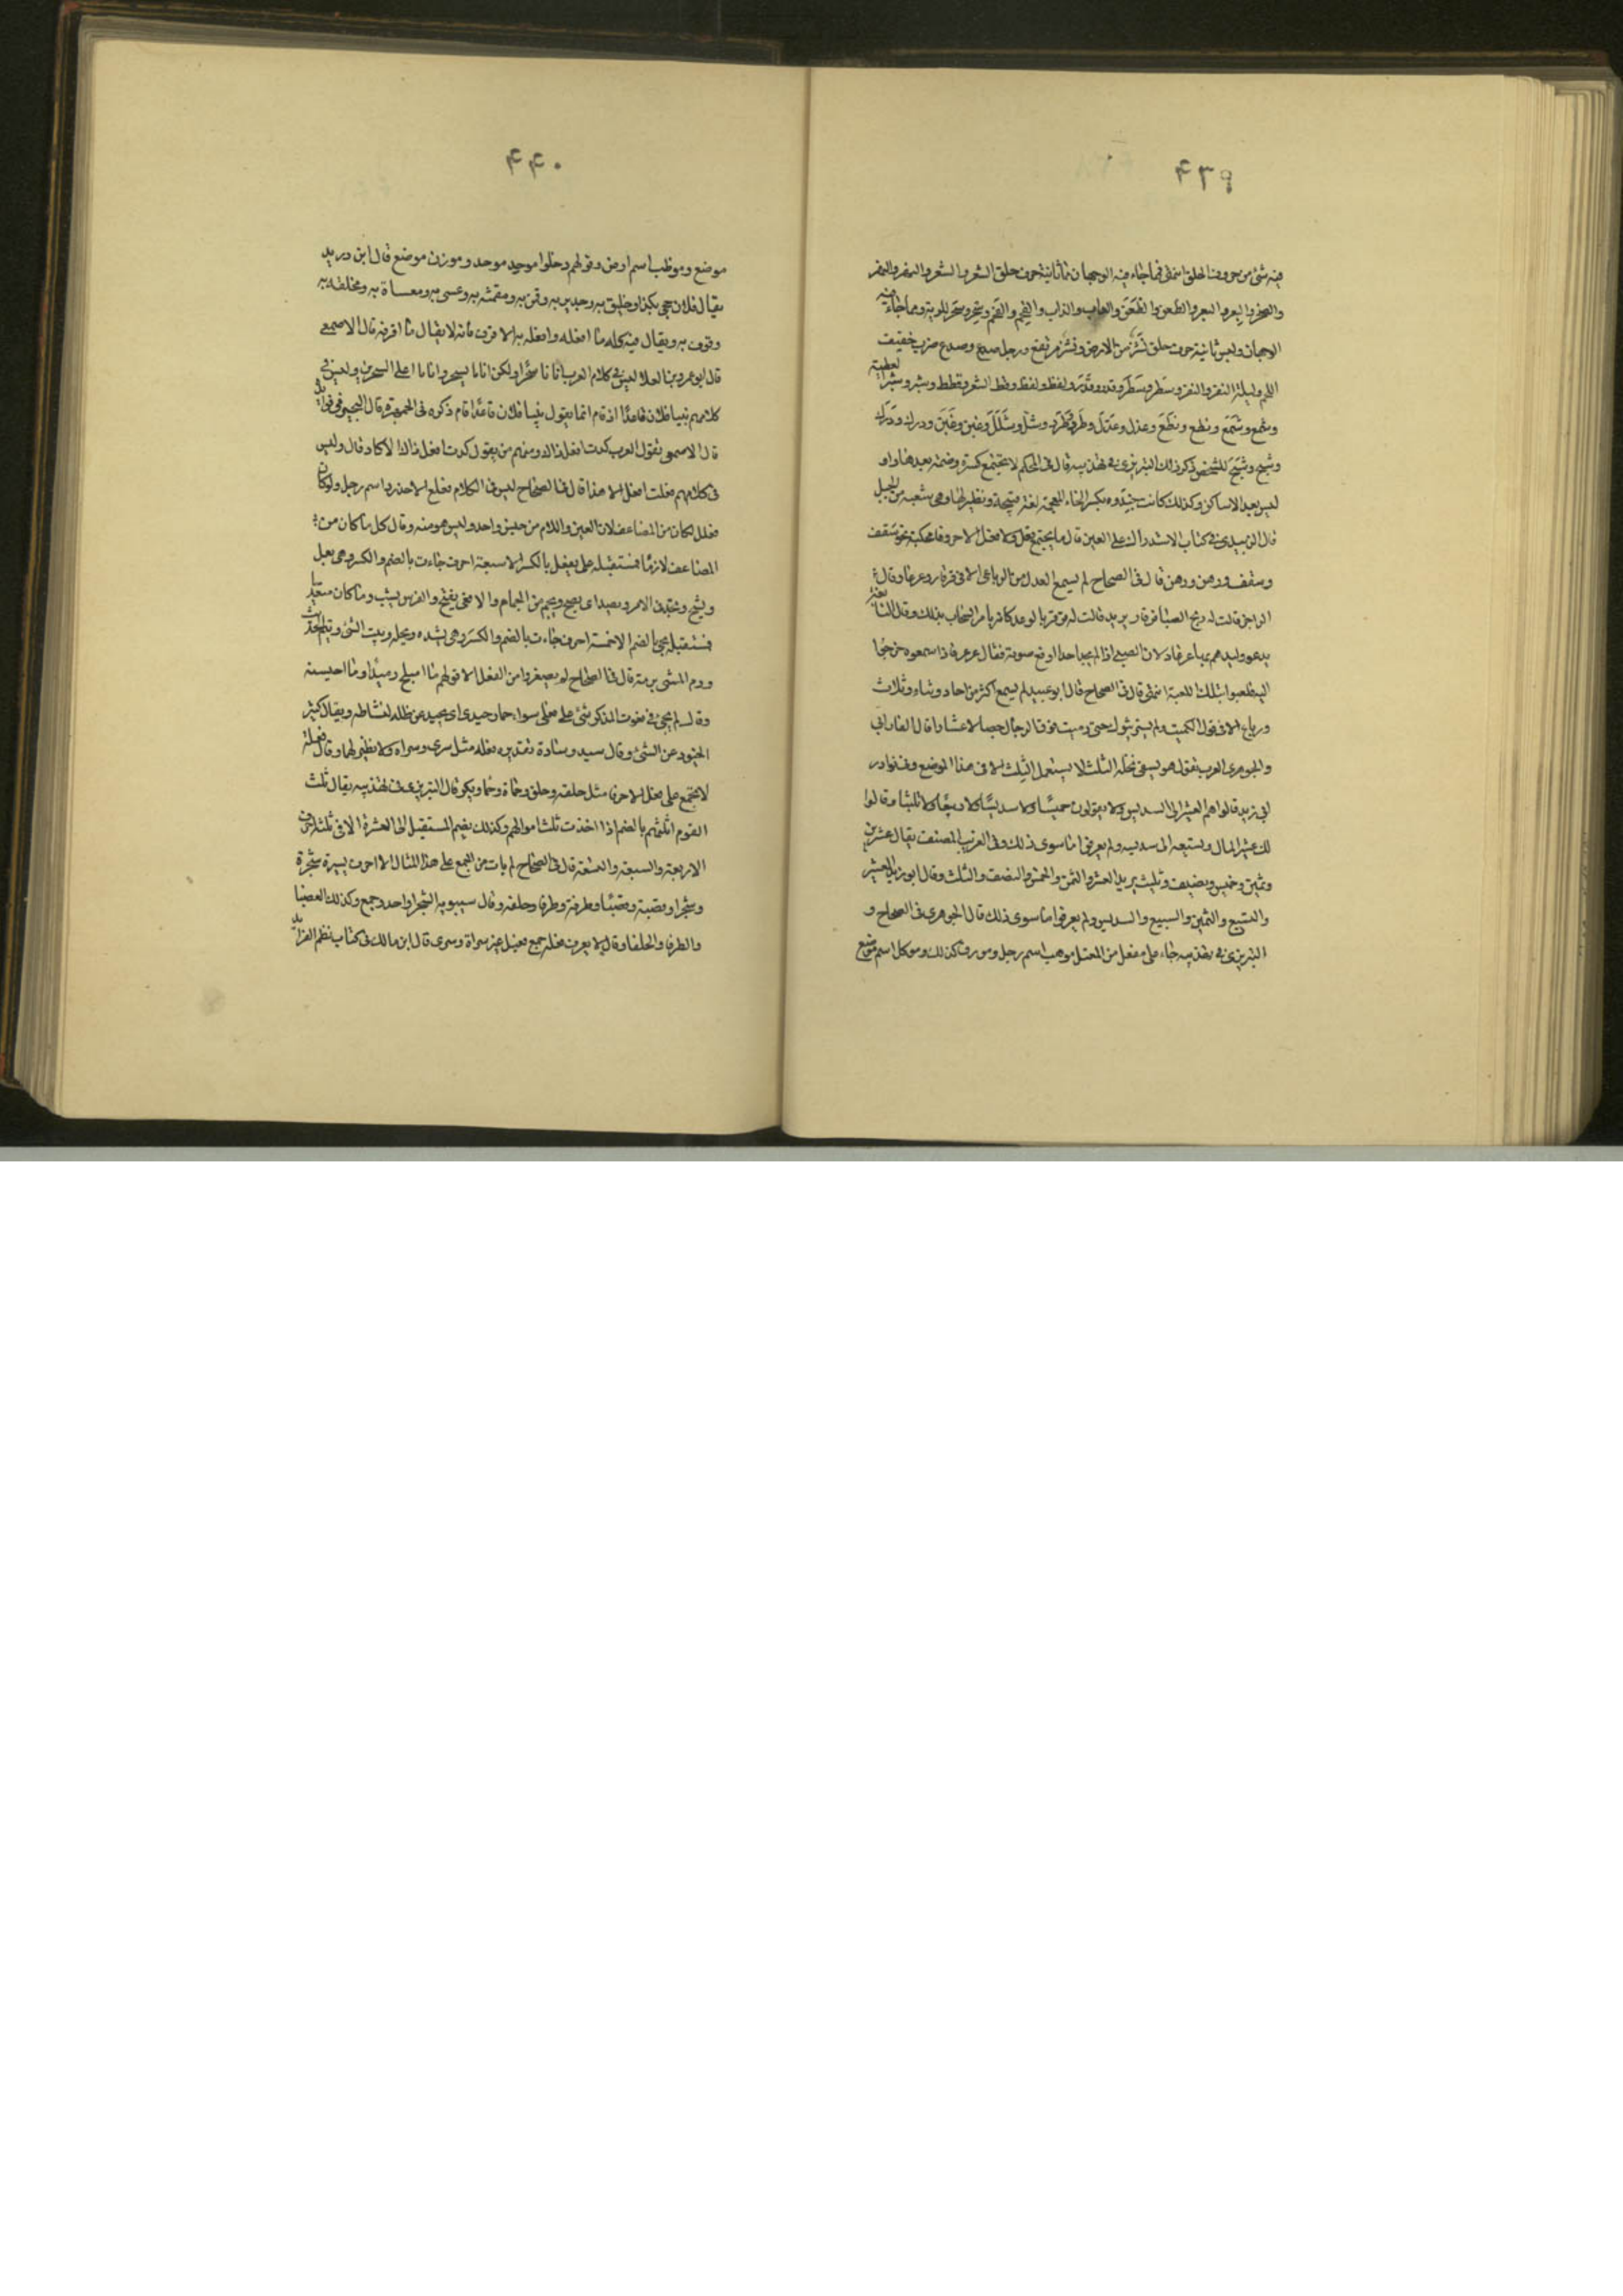 ٤٣٩
فيه شئ من حروف الحلق انتهى فما جاء فيه الوجهان مما ثانيه حرف حلق الشعر والشعر والنهر والنهر
والصخر والصخر والبعر والبعر والظعن والظعن والعاب والذاب والفحم والفحم وسحر وسحر للرية ومما جاء فيه
الوجهان وليس ثانيه حرف حلق نشز من الارض ونشز مرتفع ورجل صدع وصدع ضرب خفيف
اللحم وليلة النفر والنفر وسطر وسطر وقدر وقدر ولفظ ولغط وقط الشعر وقطط وشبر وشبر لعطية
وشمع وشمع ونطع ونطع وعذل وعذل وطرد وطرد وشل وشلل وغبن وغبن ودرك ودرك
وشبح وشبح للشخص ذكر ذلك التبريزى فى تهذيبه قال فى المحكم لا تجتمع كسرة وضمة بعدها واو
ليس بعد الا ساكن وكذلك كانت خنذوة بكسر الخاء المعجمة لغة قبيحة ولا نظير لها وهى شعبة من الجبل
قال الزبيدى فى كتاب الاستدراك على العين قال ما يجتمع فعل ولا فعل الا حروفا محكية نحو سقف
وسقف ورهن ورهن قال فى الصحاح لم يسمع العدل من الرباعى الا فى قرقار وعرعار قال
الراجز قالت له ريح الصبا قرقار يريد قالت له قرقر بالرعد كانه يامر السحاب بذلك وقال النابغة
يدعو وليدهم بها عرعار لان الصبى اذا لم يجد احدا رفع صوته فقال عرعار فاذا سمعوه خرجوا
اليه فلعبوا بتلك اللعبة انتهى قال فى الصحاح قال ابو عبيد لم يسمع اكثر من احاد وثناء وثلاث
ورباع الا فى قول الكميت ولم يستريثوك حتى رميت فوق الرجال خصالا عشارا قال الفارابى
والجوهرى العرب تقول هو يسقى نخله الثلث لا يستعمل الثلث الا فى هذا الموضع وفى نوادر
ابى زيد قالوا هم العشر الى السديس ولا يقولون خميسا ولا سديسا ولا ربيعا ولا ثليثا وقالوا
لك عشير المال وتسيعه الى سديسه ولم يعرفوا ما سوى ذلك وفى الغريب المصنف يقال عشرين
وثمين وخميس ونصيف وثليث يريد العشر والثمن والخمس والنصف والثلث وقال ابو زيد العشير
والتسيع والثمين والسبيع والسديس ولم يعرفوا ما سوى ذلك قال الجوهرى فى الصحاح و
التبريزى فى تهذيبه جاء على مفعل من المعتل موهب اسم رجل ومورق كذلك وموكل اسم موضع
٤٤٠
موضع وموظب اسم ارض وقولهم دخلوا موحد موحد وموزن موضع قال ابن دريد
يقال فلان حجى بكذا وخليق به وجدير به وقمن به ومقمنة به وعسى به ومعساة به ومخلقة به
وقرف به ويقال فيه كله ما افعله وافعل به الا قرف فانه لا يقال ما اقرفه قال الاصمعى
قال ابو عمرو بن العلا ليس فى كلام العرب اتانا سحرا ولكن اتانا بسحر واتانا اعلى السحرين وليس فى
كلامهم بينا فلان قاعدا اذ قام انما يقول بينا فلان قاعدا قام ذكره فى الجمهرة وقال النجيرمى فى فوايده
قال الاصمعى تقول العرب كدت افعل ذاك ومنهم من يقول كدت افعل ذاك الا كاد قال وليس
فى كلامهم فعلت افعل الا هذا قال فى الصحاح ليس فى الكلام فعلع الا حدرد اسم رجل ولو كان
فعلل لكان من المضاعف لان العين واللام من جنس واحد وليس هو منه وقال كل ما كان من
المضاعف لازما فمستقبله على يفعل بالكسر الا سبعة احرف جاءت بالضم والكسر وهى يعل
ويشح ويجد فى الامر ويصد اى يضج ويجم من الجمام والافعى يفح والفرس يشب وما كان متعديا
فمستقبله يجئ بالضم الا خمسة احرف جاءت بالضم والكسر وهى يشده ويعله ويبت الشئ وينم الحديث
ورم الشئ يرمه قال فى الصحاح لم يصغروا من الفعل الا قولهم ما اميلح زيدا وما احيسنه
وقال لم يجئ فى نعوت المذكر شئ على فعلى سوى حمار حيدى اى يحيد عن ظله لنشاطه ويقال كثير
الحيود عن الشئ وقال سيد وسادة تقديره فعلة مثل سرى وسراة ولا نظير لهما وقال فعلة
لا تجتمع على فعل الا احرفا مثل حلقة وحلق وحماة وحما وبكرة قال التبريزى فى تهذيبه يقال ثلث
القوم اثلثهم بالضم اذا اخذت ثلث اموالهم وكذلك بضم المستقبل الى العشرة الا فى ثلثة احرف
الاربعة والسبعة والتسعة قال فى الصحاح لم يات من الجمع على هذا المثال الا احرف يسيرة شجرة
وشجراء وقصبة وقصباء وطرفة وطرفاء وحلفة وقال سيبويه الشجراء واحد وجمع وكذلك القصباء
والطرفاء والحلفاء وقال لا يعرف فعلة جمع فعيل غير سراة وسرى قال ابن مالك فى كتاب نظم الفرائد